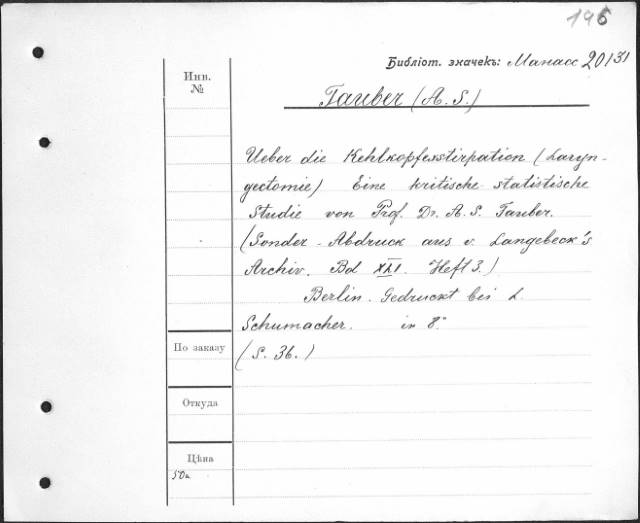 196
Библіот. значекъ: Манасс 20/31
Инв.
№
Tauber (A. S.)
Ueber die Kehlkopfexstirpation (Laryn-
gectomie) Eine kritische statistische
Studie von Prof. Dr. A. S. Tauber.
(Sonder-Abdruck aus v. Langebeck's
Archiv. Bd XLI. Heft 3.)
Berlin. Gedruckt bei L.
Schumacher. in 8°
По заказу
(S. 36.)
Откуда
Цѣна